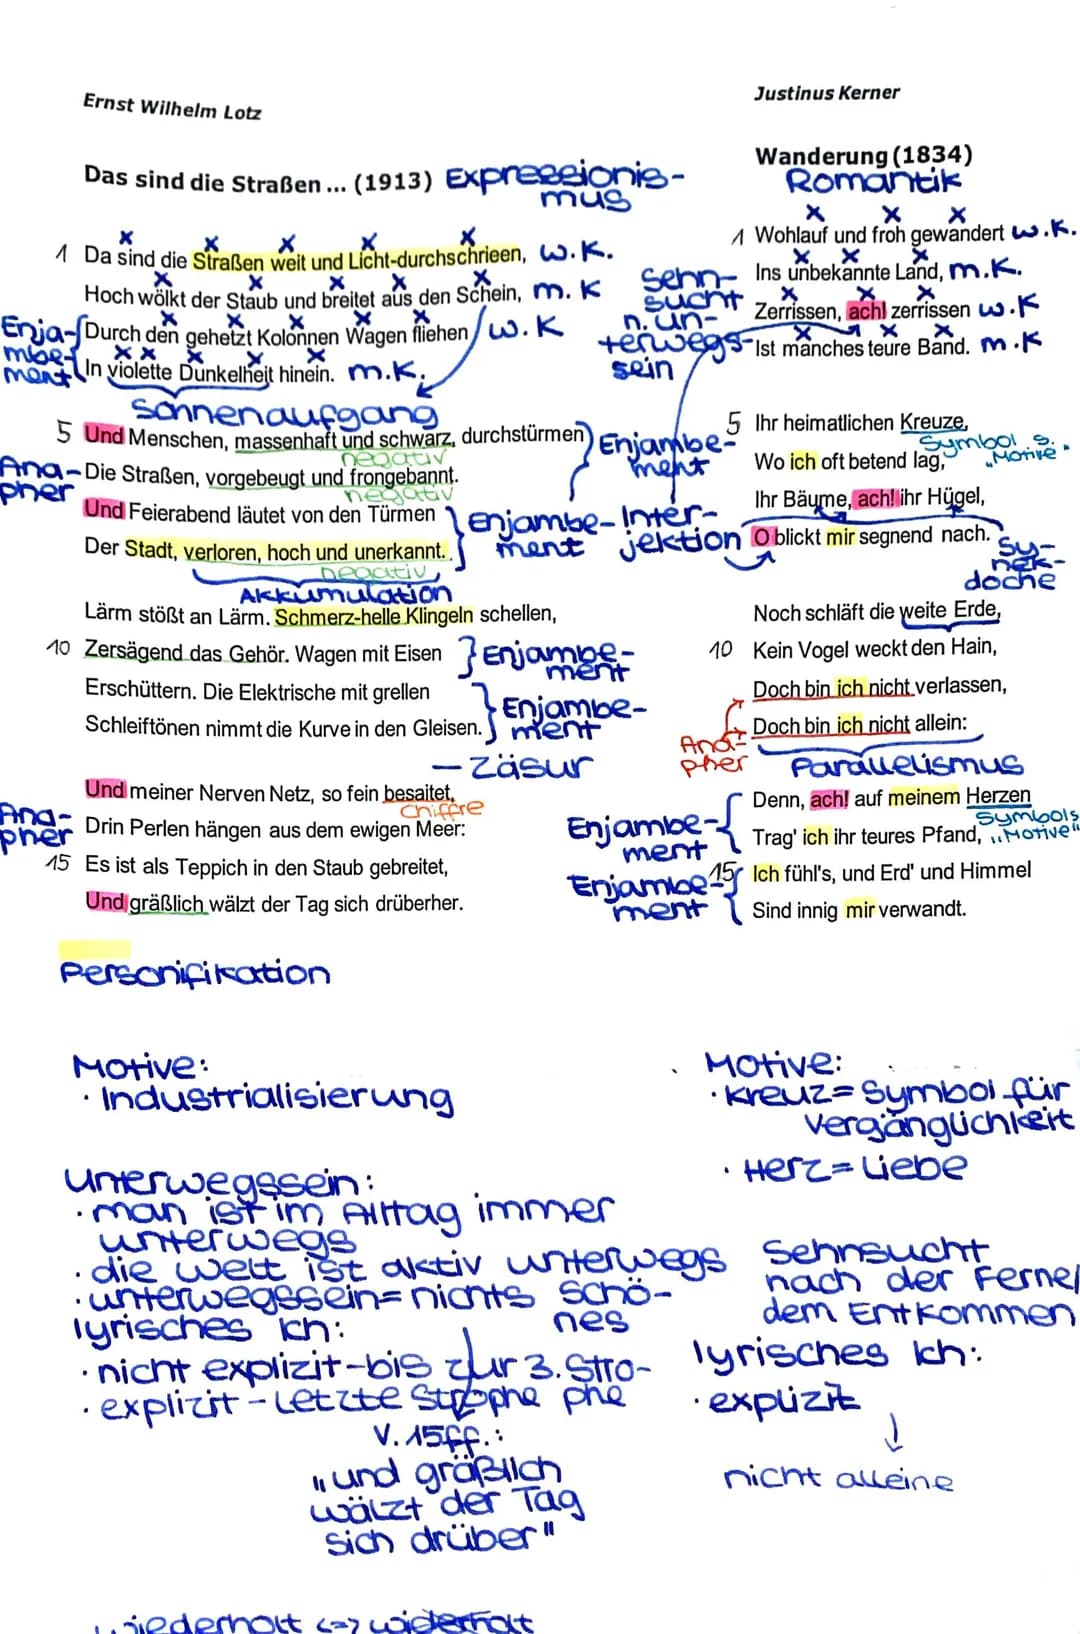 Ernst Wilhelm Lotz
Das sind die Straßen ... (1913) Expressionis-
mus
1 Da sind die Straßen weit und Licht-durchschrieen, w.K.
Hoch wölkt der Staub und breitet aus den Schein, m. K
Enja-
mbe-
ment
Durch den gehetzt Kolonnen Wagen fliehen w.K
In violette Dunkelheit hinein. m.K.
Sonnenaufgang
5 Und Menschen, massenhaft und schwarz, durchstürmen
negativ
Enjambe-
ment
Ana-
pher
Die Straßen, vorgebeugt und frongebannt.
negativ
Und Feierabend läutet von den Türmen
Der Stadt, verloren, hoch und unerkannt.
negativ
Enjambe-
ment
Akkumulation
Lärm stößt an Lärm. Schmerz-helle Klingeln schellen,
10 Zersägend das Gehör. Wagen mit Eisen
Enjambe-
ment
Erschüttern. Die Elektrische mit grellen
Schleiftönen nimmt die Kurve in den Gleisen.
Enjambe-
ment
– Zäsur
Und meiner Nerven Netz, so fein besaitet,
Chiffre
Ana-
pher
Drin Perlen hängen aus dem ewigen Meer:
15 Es ist als Teppich in den Staub gebreitet,
Und gräßlich wälzt der Tag sich drüberher.
Personifikation
Motive:
· Industrialisierung
Unterwegssein:
· man ist im Alltag immer
unterwegs
· die Welt ist aktiv unterwegs
· unterwegssein= nichts Schö-
nes
lyrisches Ich:
· nicht explizit-bis zur 3. Stro-
phe
· explizit - Letzte Strophe
V. 15ff.:
"und gräßlich
wälzt der Tag
sich drüber"
wiederholt <=> widerholt
Justinus Kerner
Wanderung (1834)
Romantik
1 Wohlauf und froh gewandert w.K.
Ins unbekannte Land, m.K.
Zerrissen, ach! zerrissen w.K
Ist manches teure Band. m.K
Sehn-
sucht
n. un-
terwegs-
sein
5 Ihr heimatlichen Kreuze,
Symbol s.
"Motive"
Wo ich oft betend lag,
Ihr Bäume, ach! ihr Hügel,
Inter-
jektion
O blickt mir segnend nach.
Sy-
nek-
doche
Noch schläft die weite Erde,
10 Kein Vogel weckt den Hain,
Doch bin ich nicht verlassen,
Doch bin ich nicht allein:
Ana-
pher
Parallelismus
Denn, ach! auf meinem Herzen
Symbols.
"Motive"
Enjambe-
ment
Trag' ich ihr teures Pfand,
15 Ich fühl's, und Erd' und Himmel
Enjambe-
ment
Sind innig mir verwandt.
Motive:
· Kreuz= Symbol für
Vergänglichkeit
· Herz= Liebe
Sehnsucht
nach der Ferne/
dem Entkommen
lyrisches Ich:
· explizit
nicht alleine